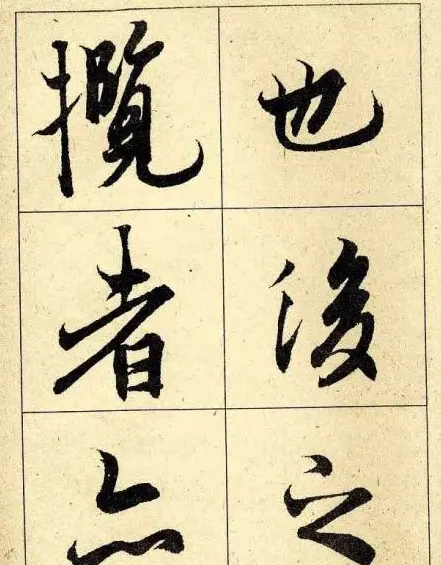 也後之
攬者亦